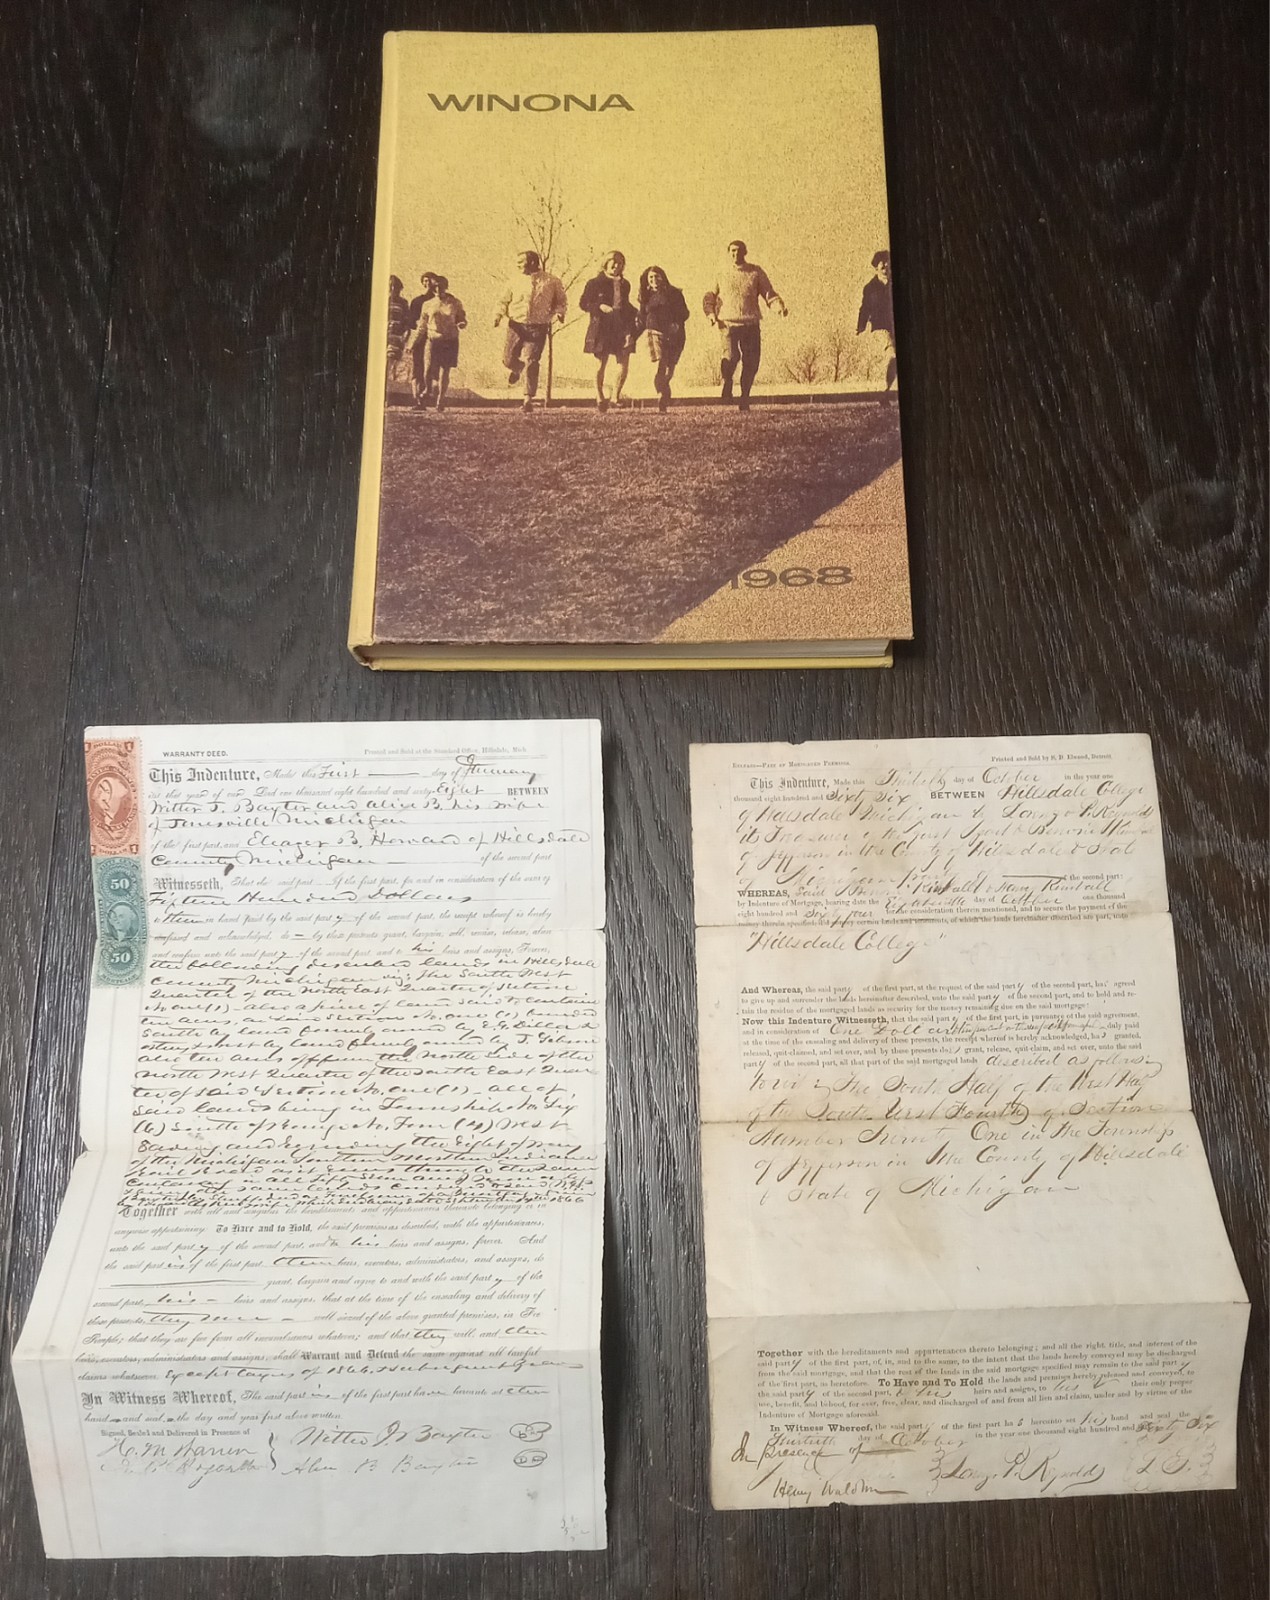 WINONA
1968
1
DOLLAR
1
1
1
50
50
WARRANTY DEED.
Printed and Sold at the Standard Office, Hillsdale, Mich
This Indenture, Made this First day of January
in the year of our Lord one thousand eight hundred and sixty Eight BETWEEN
Witter J. Baxter and Alice B. his wife
of Jonesville Michigan
of the first part, and B. Howard of Hillsdale
County Michigan of the second part
Witnesseth, That the said part of the first part, for and in consideration of the sum of
Fifteen Hundred Dollars
to them in hand paid by the said party of the second part, the receipt whereof is hereby
confessed and acknowledged, do by these presents grant, bargain, sell, remise, release, alien
and confirm unto the said party of the second part, and to his heirs and assigns, Forever,
the following described lands in Hillsdale
County Michigan viz: the South West
Quarter of the North East Quarter of Section
No. one (1) also a piece of land said to contain
ten acres, on said Section No. one (1) bounded
South by land formerly owned by
West by land formerly owned by J.
also ten acres off from the North Side of the
North West Quarter of the South East Quar
ter of said Section No. one (1) all of
said lands being in Township No. Six
(6) South of Range No. Four (4) West
Saving and the Right of way
of the Michigan Southern Northern Indiana
Rail Road as it runs through the same
Together with all and singular the hereditaments and appurtenances thereto belonging or in
anywise appertaining: To Have and to Hold, the said premises as described, with the appurtenances,
unto the said party of the second part, and to his heirs and assigns, forever. And
the said parties of the first part, their heirs, executors, administrators, and assigns, do
grant, bargain and agree to and with the said party of the
second part, his heirs and assigns, that at the time of the ensealing and delivery of
these presents, they were well seized of the above granted premises, in Fee
Simple; that they are free from all incumbrances whatever; and that they will, and their
heirs, executors, administrators and assigns, shall Warrant and Defend the same against all lawful
claims whatsoever, Except taxes of 1866 & subsequent years
In Witness Whereof, The said parties of the first part have hereunto set their
hand and seal the day and year first above written
Signed, Sealed and Delivered in Presence of
H. M. Warren
Witter J. Baxter
Alice B. Baxter
RELEASE—PART OF MORTGAGED PREMISES.
Printed and Sold by S. D. Elwood, Detroit
This Indenture, Made this Thirtieth day of October in the year one
thousand eight hundred and Sixty Six BETWEEN Hillsdale College
of Hillsdale Michigan by Lorenzo P. Reynolds
its Treasurer of the first part & Benoni Kimball
of Jefferson in the County of Hillsdale & State
of Michigan of the second part:
WHEREAS, Said Benoni Kimball & Mary Kimball
by Indenture of Mortgage, bearing date the Eighteenth day of October one thousand
eight hundred and Sixty four for the consideration therein mentioned, and to secure the payment of the
money therein specified, did convey certain lands and tenements, of which the lands hereinafter described are part, unto
"Hillsdale College"
And Whereas, the said party of the first part, at the request of the said party of the second part, has agreed
to give up and surrender the lands hereinafter described, unto the said party of the second part, and to hold and re-
tain the residue of the mortgaged lands as security for the money remaining due on the said mortgage:
Now this Indenture Witnesseth, that the said party of the first part, in pursuance of the said agreement,
and in consideration of One Dollar duly paid
at the time of the ensealing and delivery of these presents, the receipt whereof is hereby acknowledged, has granted,
released, quit-claimed, and set over, and by these presents does grant, release, quit-claim, and set over, unto the said
party of the second part, all that part of the said mortgaged lands described as follows
to wit: The South Half of the West Half
of the South West Fourth of Section
Number Twenty One in the Township
of Jefferson in the County of Hillsdale
& State of Michigan
Together with the hereditaments and appurtenances thereto belonging; and all the right, title, and interest of the
said party of the first part, of, in, and to the same, to the intent that the lands hereby conveyed may be discharged
from the said mortgage, and that the rest of the lands in the said mortgage specified may remain to the said party
of the first part, as heretofore. To Have and To Hold the lands and premises hereby released and conveyed, to
the said party of the second part, & his heirs and assigns, to his & their only proper
use, benefit, and behoof, for ever, free, clear, and discharged of and from all lien and claim, under and by virtue of the
Indenture of Mortgage aforesaid.
In Witness Whereof, the said party of the first part has hereunto set his hand and seal the
Thirtieth day of October in the year one thousand eight hundred and Sixty Six
In presence of
Lorenzo P. Reynolds L S
Henry Waldron